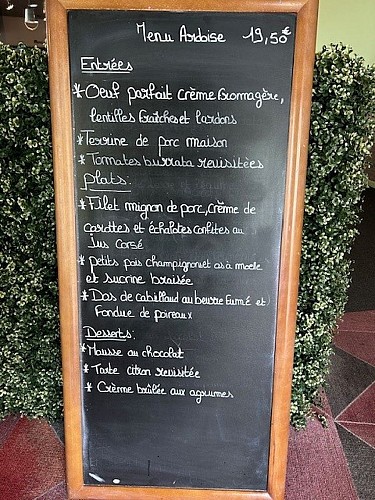 Menu Ardoise 19,50€
Entrées
* Oeuf parfait crème fromagère,
lentilles fraîches et lardons
* Terrine de porc maison
* Tomates burrata revisitées
Plats:
* Filet mignon de porc, crème de
carottes et échalotes confites au
Jus corsé
* petits pois champignon et os à moelle
et sucrine braisée
* Dos de cabillaud au beurre fumé et
Fondue de poireaux
Desserts:
* Mousse au chocolat
* Tarte citron revisitée
* Crème brûlée aux agrumes